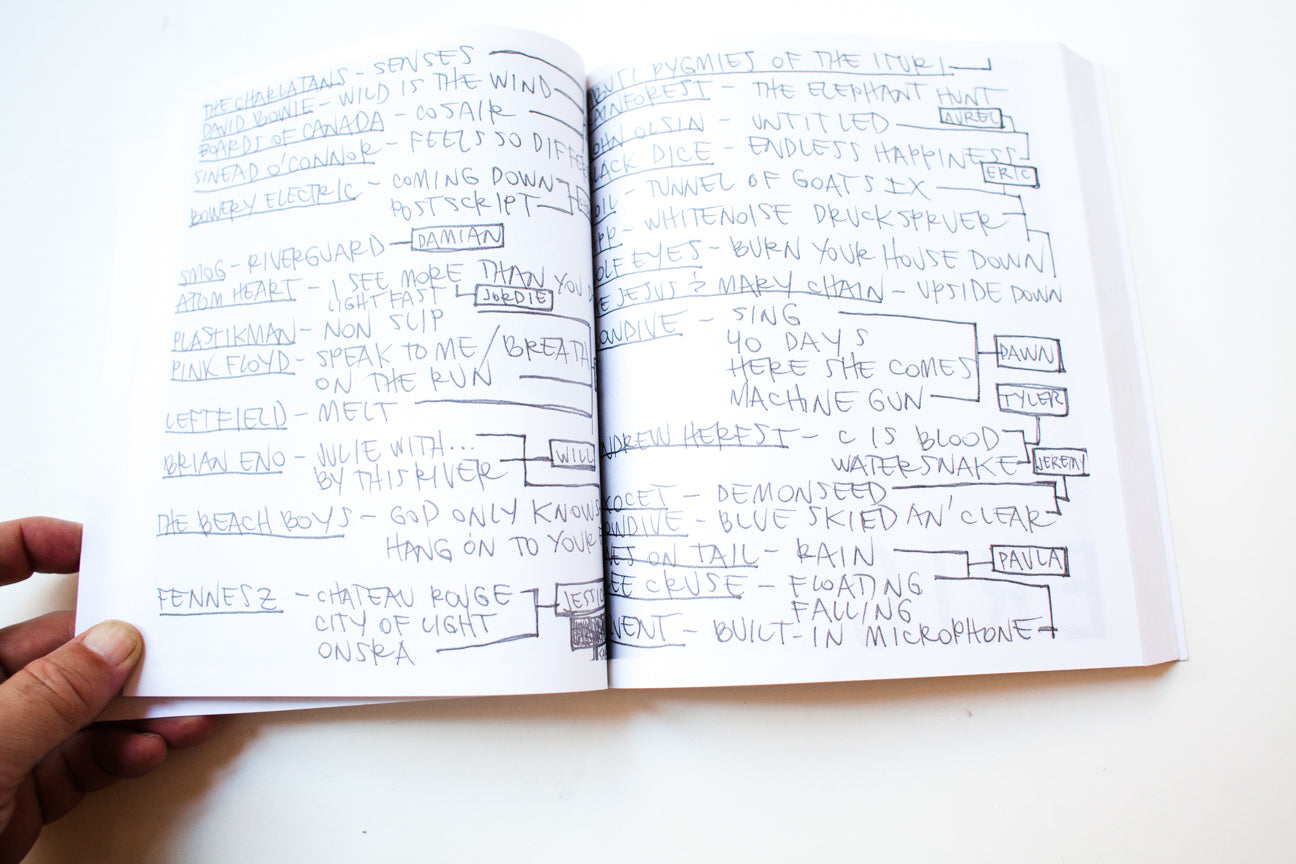 THE CHARLATANS - SENSES
DAVID BOWIE - WILD IS THE WIND
BOARDS OF CANADA - COSAIR
SINEAD O'CONNOR - FEELS SO DIFFE
BOWERY ELECTRIC - COMING DOWN
POSTSCRIPT
SMOG - RIVERGUARD DAMIAN
ATOM HEART - I SEE MORE THAN YOU
LIGHT FAST JORDIE
PLASTIKMAN - NON SLIP
PINK FLOYD - SPEAK TO ME / BREATH
ON THE RUN
LEFTFIELD - MELT
BRIAN ENO - JULIE WITH... WILL
BY THIS RIVER
THE BEACH BOYS - GOD ONLY KNOWS
HANG ON TO YOUR
FENNESZ - CHATEAU ROUGE JESSI
CITY OF LIGHT
ONSRA
PYGMIES OF THE ITURI
AINFOREST - THE ELEPHANT HUNT
AUREL
OHN OLSIN - UNTITLED
LACK DICE - ENDLESS HAPPINESS
ERIC
OIL - TUNNEL OF GOATS IX
- WHITENOISE DRUCKSPRUER
OLF EYES - BURN YOUR HOUSE DOWN
E JESUS & MARY CHAIN - UPSIDE DOWN
OWDIVE - SING
40 DAYS DAWN
HERE SHE COMES
MACHINE GUN TYLER
NDREW HERFST - C IS BLOOD
WATERSNAKE JEREMY
- DEMONSEED
OWDIVE - BLUE SKIED AN' CLEAR
ES ON TAIL - RAIN PAULA
EE CRUSE - FLOATING
FALLING
VENT - BUILT-IN MICROPHONE